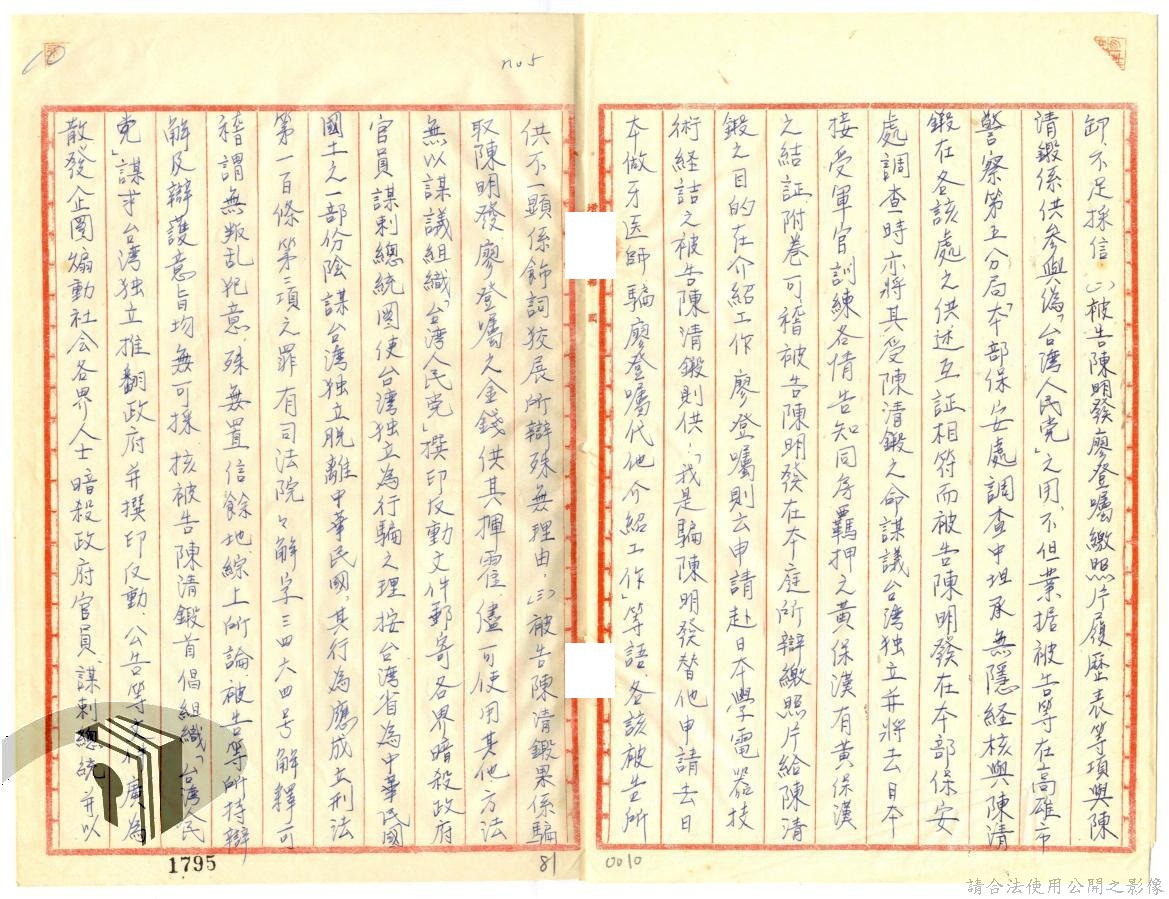 卸、不足採信(二)被告陳明發廖登囑繳照片履歷表等項與陳
清鍛係供參與偽「台湾人民党」之用、不但業据被告等在高雄市
警察第五分局「本部保安處調查中坦承無隱経核與陳清
鍛在各該處之供述互証相符而被告陳明發在本部保安
處調查時亦將其受陳清鍛之命謀議台湾独立并將去日本
接受軍官訓練各情告知同房羈押之黃保漢有黃保漢
之結証附巻可稽被告陳明發在本庭所辯繳照片給陳清
鍛之目的在介紹工作廖登囑則云申請赴日本學電器技
術経詰之被告陳清鍛則供:「我是騙陳明發替他申請去日
本做牙医師騙廖登囑代他介紹工作」等語、各該被告所
供不一顯係飾詞狡展所辯殊無理由,(三)被告陳清鍛果係騙
取陳明發廖登囑之金錢供其揮霍、儘可使用其他方法
無以謀議組織「台湾人民党」撰印反動文件郵寄各界暗殺政府
官員謀刺總統圖使台湾独立為行騙之理按台湾省為中華民國
國土之一部份陰謀台湾独立脱離中華民國、其行為應成立刑法
第一百條第三項之罪有司法院々解字三四六四号解釋可
稽謂無叛乱犯意殊無置信餘地、綜上所論、被告等所持辯
解及辯護意旨均無可採核被告陳清鍛首倡組織「台湾人民
党」謀求台湾独立推翻政府并撰印反動、公告等文件廣為
散發企圖煽動社会各界人士暗殺政府官員、謀刺總統并以
no 5
1795
81
0010
請合法使用公開之影像